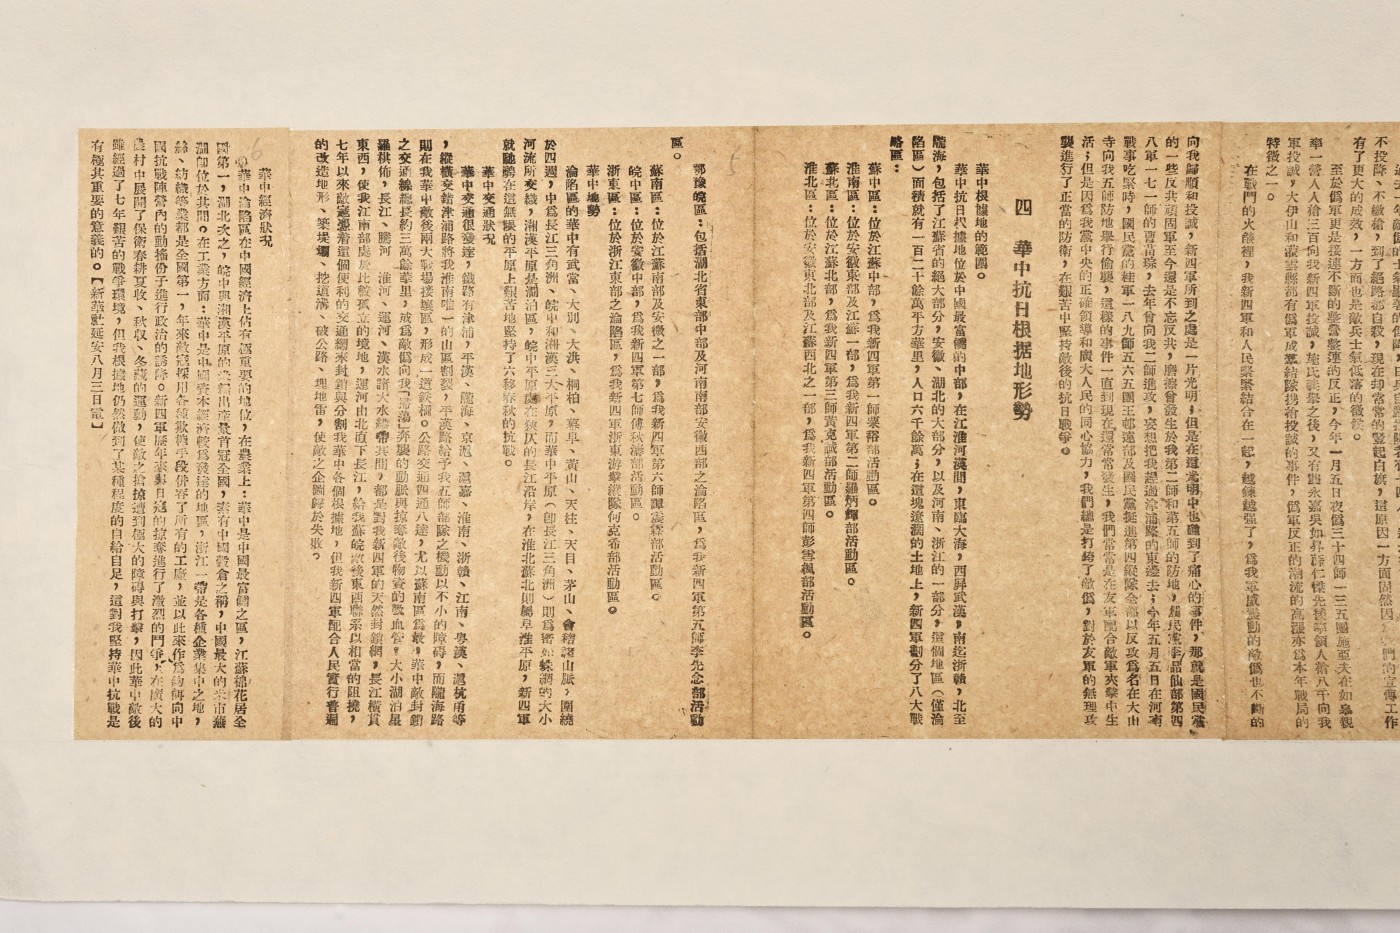 不投降、不繳槍，到了絕路都自殺，現在却常常的豎起白旗，這原因一方面固然因
有了更大的成效，一方面也是敵兵士氣低落的徵候。
至於僞軍更是接連不斷的整營整連的反正，今年一月五日夜僞三十四師一三五團施亞夫在如皋親
率一營人人槍三百向我新四軍投誠，施氏義舉之後，又有
軍投誠，大伊山和灌雲縣部有僞軍成羣結隊携着投誠的事件，僞軍反正的潮流的高漲亦爲本年戰局的
特徵之一。
在戰鬥的火燄裡，我新四軍和人民緊緊結合在一起，越鍊越强了，爲我軍威震動的敵僞也不斷的
向我歸順和投誠，新四軍所到之處是一片光明，但是在這光明中也碰到了痛心的事件，那就是國民黨
的一些反共頑固軍至今還是不忘反共，磨擦曾發生於我第二師和第五師的防地，國民黨李品仙部第四
八軍一七一師的曹茂琮，去年曾向我二師進攻，妄想把我趕過津浦路的東邊去；今年五月五日在河南
戰事吃緊時，國民黨的陸軍一八九師五六五團王郁遠部及國民黨挺進第四縱隊全部以反攻爲名在大山
寺向我五師防地舉行偷襲，這樣的事件一直到現在還常常發生，我們常常是在友軍配合敵軍夾擊中生
活；但是因爲我黨中央的正確領導和廣大人民的同心協力，我們總是打垮了敵僞，對於友軍的無理攻
襲進行了正當的防衛，在艱苦中堅持敵後的抗日戰爭。
四　華中抗日根据地形勢
華中根據地的範圍。
華中抗日根據地位於中國最富饒的中部，在江淮河漢間，東臨大海，西屏武漢，南迄浙贛，北至
隴海，包括了江蘇省的絕大部分，安徽、湖北的大部分，以及河南、浙江的一部分，這個地區（僅淪
陷區）面積就有一百二十餘萬平方華里，人口六千餘萬；在這塊遼濶的土地上，新四軍劃分了八大戰
略區：
蘇中區：位於江蘇中部，爲我新四軍第一師粟裕部活動區。
淮南區：位於安徽東部及江蘇一部，爲我新四軍第二師羅炳輝部活動區。
蘇北區：位於江蘇北部，爲我新四軍第三師黃克誠部活動區。
淮北區：位於安徽東北部及江蘇西北之一部，爲我新四軍第四師彭雪楓部活動區。
5
鄂豫皖區：包括湖北省東部中部及河南南部安徽西部之淪陷區，爲我新四軍第五師李先念部活動
區。
蘇南區：位於江蘇南部及安徽之一部，爲我新四軍第六師譚震霖部活動區。
皖中區：位於安徽中部，爲我新四軍第七師傅秋濤部活動區。
浙東區：位於浙江東部之淪陷區，爲我新四軍浙東游擊縱隊何克希部活動區。
華中地勢
淪陷區的華中有武當、大別、大洪、桐柏、幕阜、黃山、天柱、天目、茅山、會稽諸山脈，圍繞
於四週，中爲長江三角洲、皖中和湘漢三大平原，而華中平原（卽長江三角洲）則爲密如蛛網的大小
河流所交織，湘漢平原是濶泊區，皖中平原處在狹仄的長江沿岸，在淮北蘇北則屬阜淮平原，新四軍
就馳騁在這無限的平原上艱苦地堅持了六移春秋的抗戰。
華中交通狀况
華中交通很發達，鐵路有津浦，平漢、隴海、京滬、滬嘉、淮南、浙贛、江南、粤漢、滬杭甬等
，縱橫交錯津浦路將我淮南唯一的山區割裂，平漢路給予我五師部隊之機動以不小的障碍，而隴海路
則在我華中敵後兩大戰場接壤區，形成一道鉄欄。公路交通四通八達，尤以蘇南區爲最，華中敵封鎖
之交通線總長約三萬餘華里，成爲敵僞向我「掃蕩」奔襲的動脈與掠奪敵後物資的吸血管。大小湖泊星
羅棋佈，長江、騰河　淮河、運河、漢水諸大水縈帶其間，都是對我新四軍的天然封鎖網，長江橫貫
東西，使我江南部處於比較孤立的境地，運河由北直下長江，給我蘇皖敵後東西聯系以相當的阻撓，
七年以來敵寇憑着這個便利的交通網來封鎖與分割我華中各個根據地，但我新四軍配合人民實行普遍
的改造地形、築堤壩、挖道溝、破公路、埋地雷，使敵之企圖歸於失敗。
6
華中經濟狀况
華中淪陷區在中國經濟上佔有極重要的地位，在農業上：華中是中國最富饒之區，江蘇棉花居全
國第一，湖北次之，皖中與湘漢平原的米糧出產最首冠全國，素有中國穀倉之稱，中國最大的米市蕪
湖卽位於其間。在工業方面：華中是中國資本經濟較爲發達的地區，浙江一帶是各種企業集中之地，
絲、紡織等業都是全國第一，年來敵寇採用各種欺騙手段併吞了所有的工廠，並以此來作爲釣餌向中
國抗戰陣營內的動搖份子進行政治的誘降。新四軍歷年來與日寇的掠奪進行了激烈的鬥爭，在廣大的
農村中展開了保衛春耕、夏收、秋收、冬藏的運動，使敵之搶掠遭到極大的障碍與打擊，因此華中敵後
雖經過了七年艱苦的戰爭環境，但我根據地仍然做到了某種程度的自給自足，這對我堅持華中抗戰是
有極其重要的意義的。【新華社延安八月三日電】